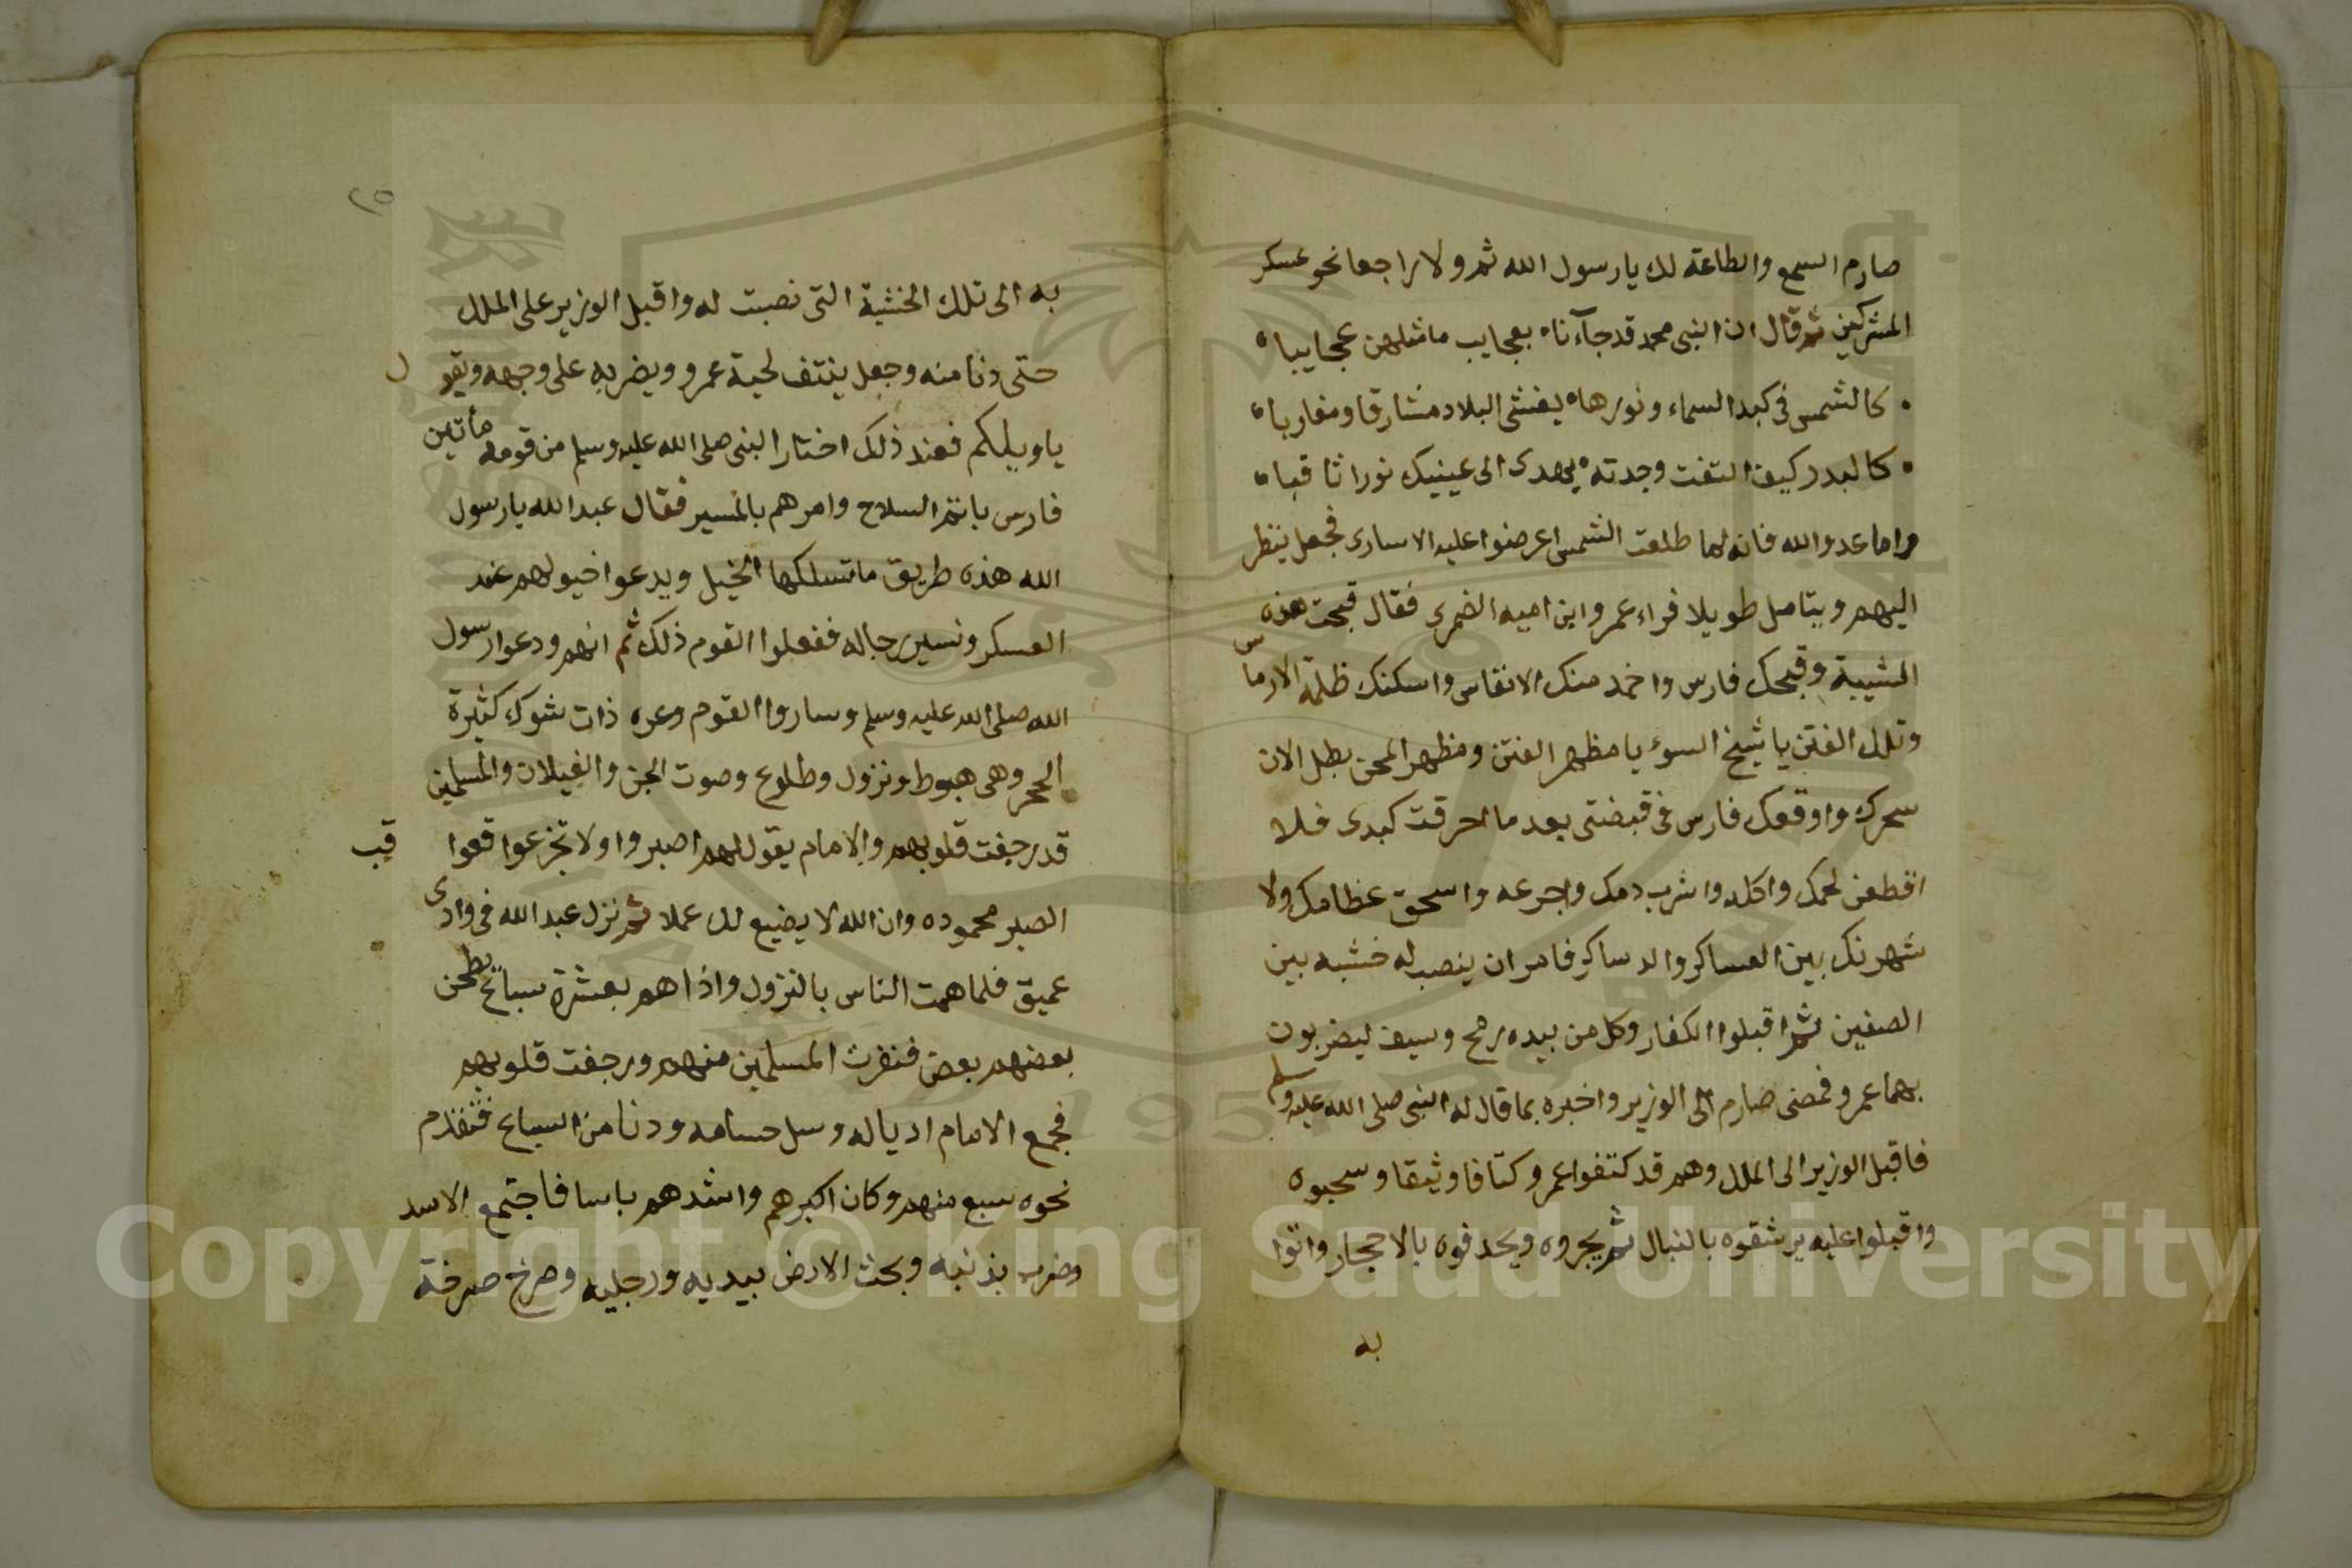 صارم السمع والطاعة لك يا رسول الله ثم ولا راجعا نحو عسكر
المشركين ثم قال ان النبى محمد قد جآءنا بعجايب ما مثلهن عجايبا
كالشمس فى كبد السماء ونورها يغشى البلاد مشارقا ومغاربا
كالبدر كيف التفت وجدته يهدى الى عينيك نورا ثاقبا
واما عدو الله فانه لما طلعت الشمس اعرضوا عليه الاسارى فجعل ينظر
اليهم ويتامل طويلا فراء عمرو ابن اميه الضمرى فقال قبحت هذه
الشيبة وقبحك فارس واخمد منك الانفاس واسكنك ظلمة الارماس
وتلك الفتن يا شيخ السوء يا مظهر الفتن ومظهر المحن بطل الان
سحرك واوقعك فارس فى قبضتى بعد ما احرقت كبدى فلا
اقطعن لحمك واكله واشرب دمك واجرعه واسحق عظامك ولا
شهرنك بين العساكر والدساكر فامر ان ينصب له خشبه بين
الصفين ثم اقبلوا الكفار وكل من بيده رمح وسيف ليضربون
بهما عمرو فمضى صارم الى الوزير واخبره بما قال له النبى صلى الله عليه وسلم
فاقبل الوزير الى الملك وهم قد كتفوا عمرو كتافا وثيقا وسحبوه
واقبلوا عليه يرشقوه بالنبال ثم يجروه ويحدفوه بالاحجار واتوا
به
٢٥
به الى تلك الخشبة التى نصبت له واقبل الوزير على الملك
حتى دنا منه وجعل ينتف لحية عمرو ويضربه على وجهه ويقول
يا ويلكم فعند ذلك اختار النبى صلى الله عليه وسلم من قومه مأتين
فارس باتم السلاح وامرهم بالمسير فقال عبد الله يا رسول
الله هذه طريق ما تسلكها الخيل ويدعوا خيولهم عند
العسكر ونسير رجاله ففعلوا القوم ذلك ثم انهم ودعوا رسول
الله صلى الله عليه وسلم وساروا القوم وعره ذات شوك كثيرة
الحجر وهى هبوط ونزول وطلوع وصوت الجن والغيلان والمسلمين
قد رجفت قلوبهم والامام يقول لهم اصبروا ولا تجزعوا فعواقب
الصبر محموده وان الله لا يضيع لك عملا ثم نزل عبد الله فى وادى
عميق فلما همت الناس بالنزول واذا هم بعشرة سبائح يطحن
بعضهم بعض فنفرت المسلمين منهم ورجفت قلوبهم
فجمع الامام اذياله وسل حسامه ودنا من السباع فتقدم
نحوه سبع منهم وكان اكبرهم واشدهم باسا فاجتمع الاسد
وضرب بذنبه وبحث الارض بيديه ورجليه وصرخ صرخة
Copyright © King Saud University
1957